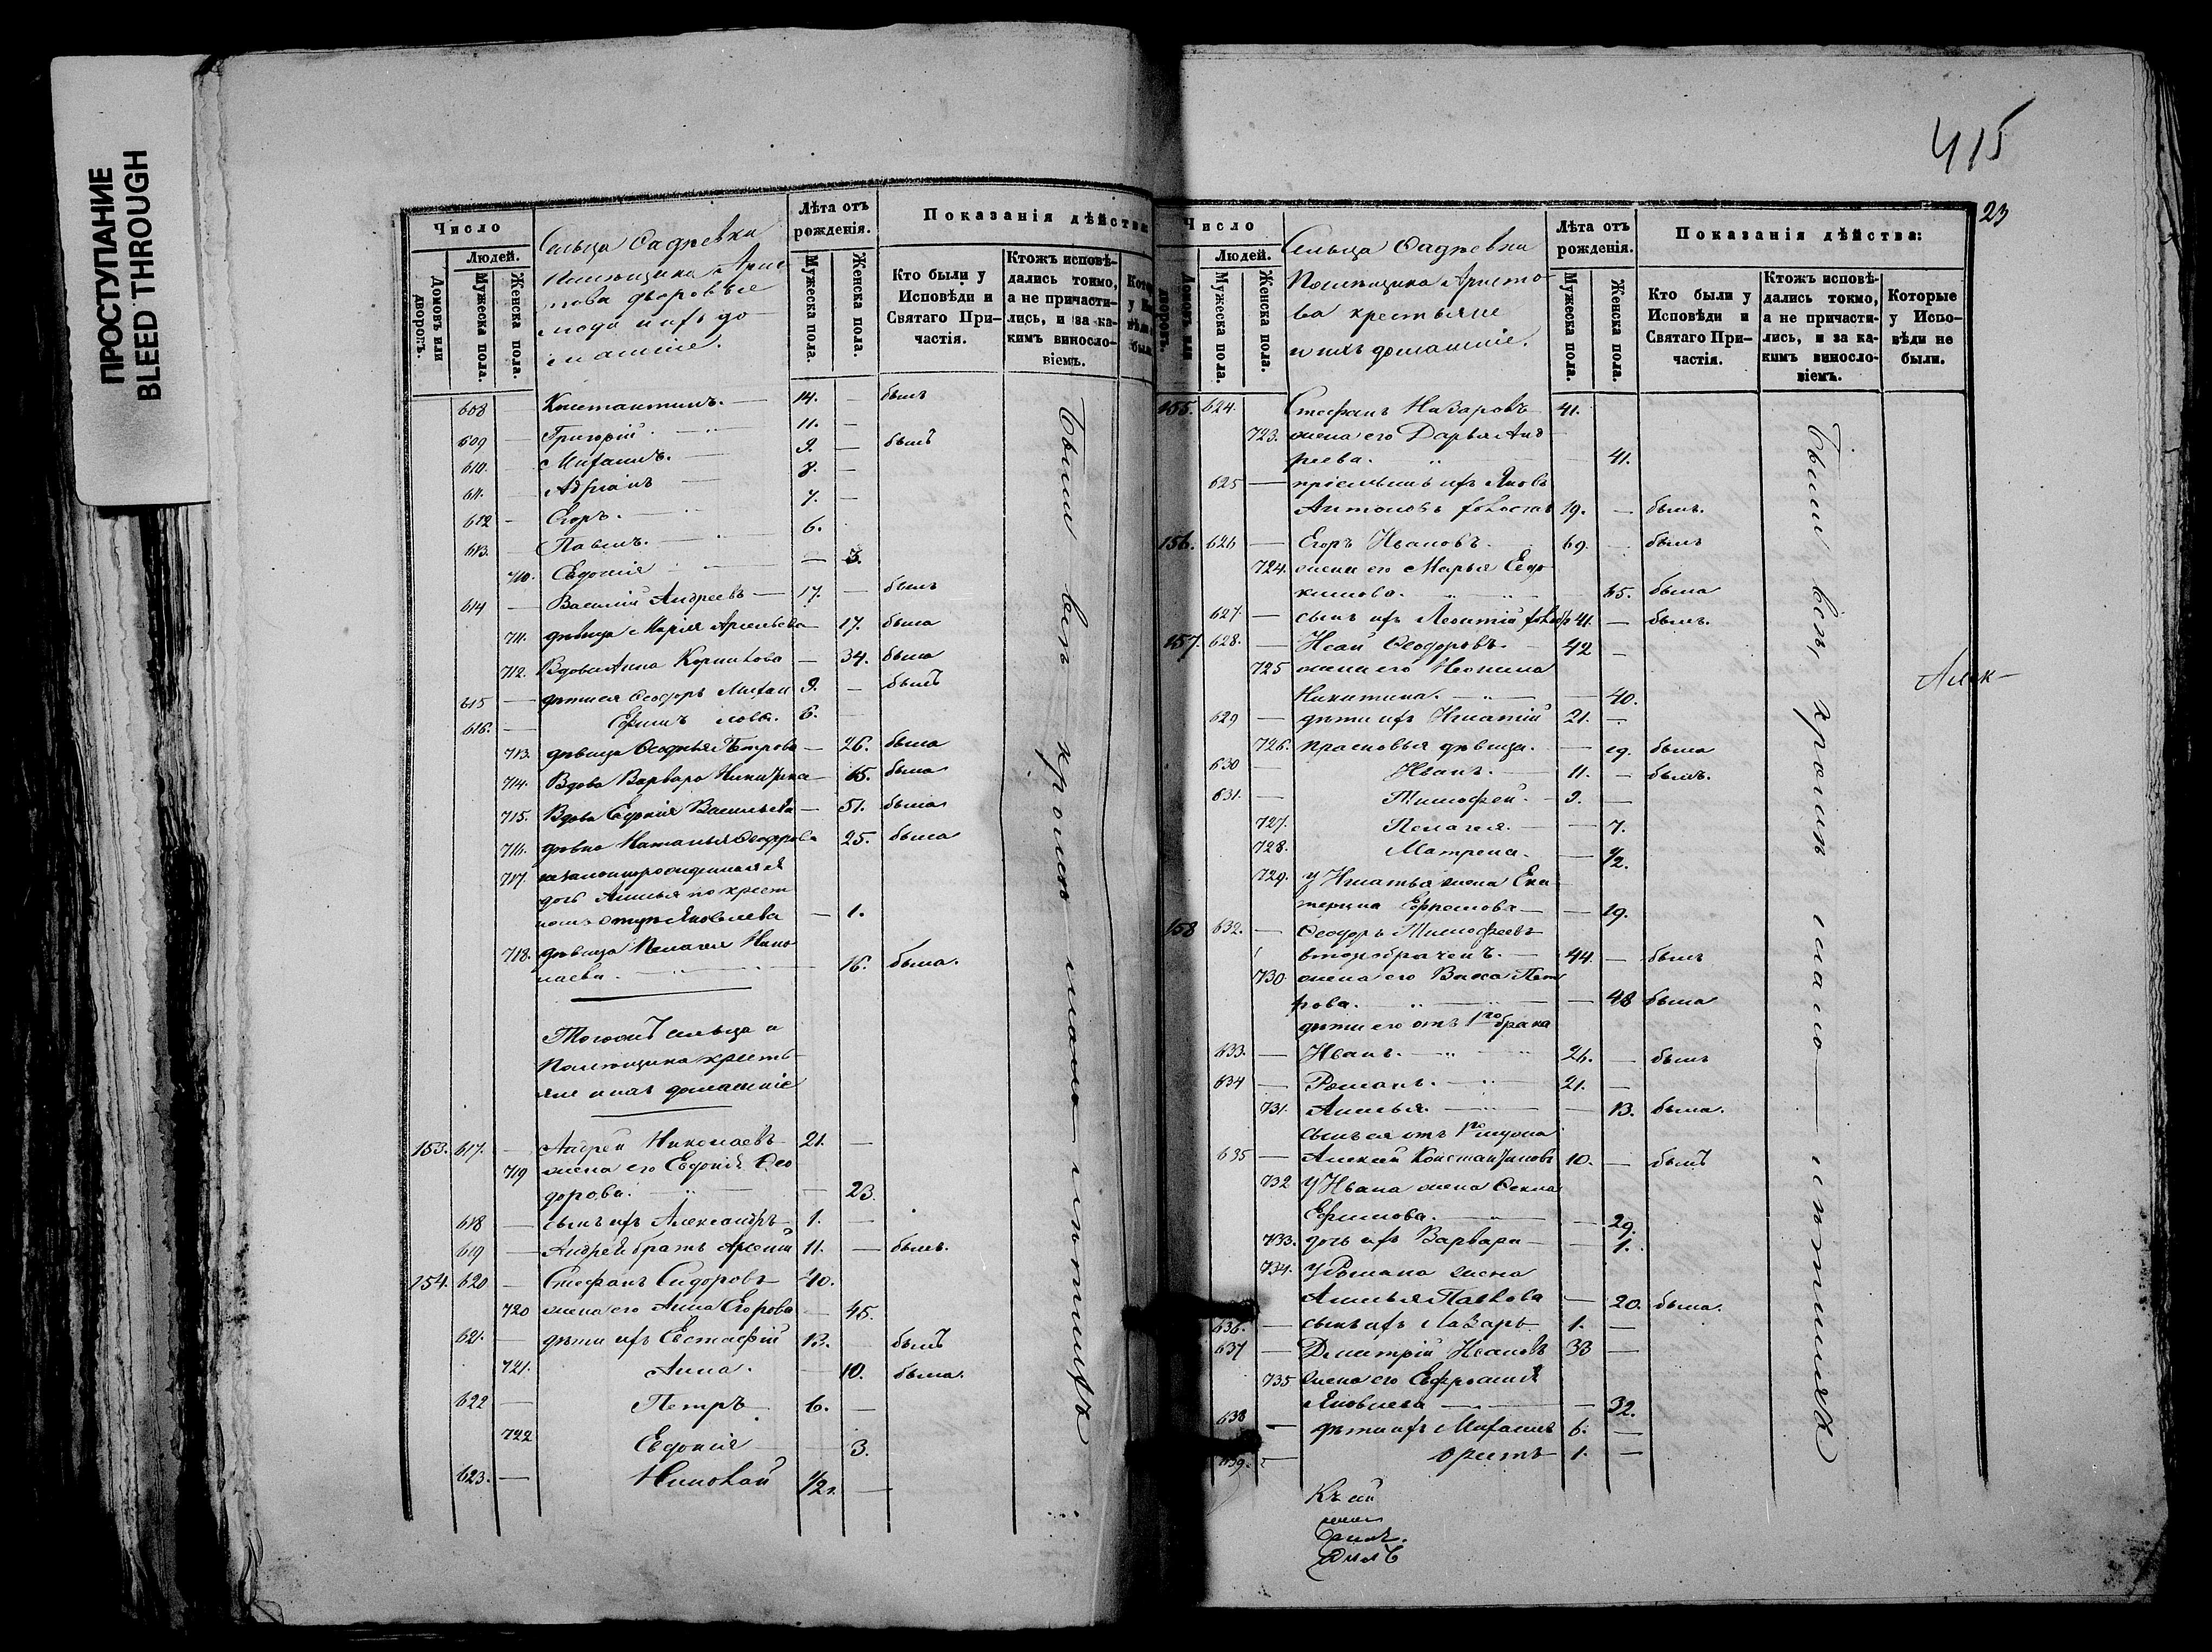 ПРОСТУПАНИЕ
BLEED THROUGH
Число
Людей.
Домовъ или дворовъ.
Мужеска пола.
Женска пола.
Сельца
Помѣщика Арис-
това дворовые
люди и ихъ до-
машніе.
Лѣта отъ рожденія.
Мужеска пола.
Женска пола.
Показанія дѣйства
Кто были у Исповѣди и Святаго При-частія.
Ктожъ исповѣ-дались токмо, а не причасти-лись, и за ка-кимъ винословіемъ.
608 Константинъ. — 14. — былъ
609 — Григорій. — 11. —
610. — Михаилъ. — 9. — былъ
611. — Адріанъ — 8. —
612 — Егоръ. — 7. —
613. — Павелъ. — 6.
710. Евдокія — — 3.
614 — Василій Андреевъ — 17. — былъ
711. дѣвица Марія — 17. была
712. Вдова Анна — 34. была
615 — дѣти ея Ѳеодоръ Михаи 9. — былъ
616. — Ефимъ ловы. 6. —
713. дѣвица Петрова — 26. была
714. Вдова Варвара Никитина — 65. была
715. Вдова Евдокія Васильева — 51. была
716. дѣвка Наталья Ѳеодорова 25. была
717. незаконнорожденная ея
дочь по крест
номъ отцѣ Яковлева — 1.
718. дѣвица Пелагея Нико-
лаева. — 16. была.
Тогожъ сельца и
Помѣщика кресть-
яне и ихъ домашніе
153. 617. — Андрей Николаевъ 21. —
719 жена его Евдокія Ѳео
дорова. — — 23.
618 — сынъ ихъ Александръ 1. —
619 — Андрея братъ Арсеній 11. — былъ.
154. 620 — Стефанъ Сидоровъ 40.
720 жена его Анна Егорова — 45.
621. — дѣти ихъ Евстафій 13. былъ
721. Анна. — 10. была.
622 — Петръ 6. —
722 Евдокія — 3.
623. — Николай 1/2. —
Были всѣ кромѣ малолѣтнихъ
415
23
Число
Людей.
Домовъ или дворовъ.
Мужеска пола.
Женска пола.
Сельца
Помѣщика Аристо-
ва крестьяне
и ихъ домашніе.
Лѣта отъ рожденія.
Мужеска пола.
Женска пола.
Показанія дѣйства:
Кто были у Исповѣди и Святаго При-частія.
Ктожъ исповѣ-дались токмо, а не причасти-лись, и за ка-кимъ винословіемъ.
Которые у Испо-вѣди не были.
155. 624. Стефанъ Назаровъ 41.
723. жена его Дарья Анд
реева. — 41.
625 — пріемышъ ихъ Яковъ
Антоновъ холостъ 19. — былъ.
156. 626 — Егоръ Ивановъ. 69. — былъ
724. жена его Марья Евдо
кимова. 65. была
627. — сынъ ихъ Леонтій 41. — былъ.
157. 628. — Исай Ѳеодоровъ. 42 —
725 жена его Неонила
Никитина. — — 40.
629 — дѣти ихъ Игнатій 21. —
726. Прасковья дѣвица. — 19. была
630 — Иванъ. 11. — былъ.
631. — Тимофей. 9. —
727. Пелагея. — 7.
728. Матрена. — 1/2.
729. у Игнатья жена Ека
терина Ефремова — — 19.
158 632. — Ѳеодоръ Тимофеевъ
второбраченъ. — 44. — былъ
730 жена его Васса Пет
рова. — — 48 была
дѣти его отъ 1го брака
633. — Иванъ. — 26. — былъ
634 — Романъ. 21. —
731. — 13. была.
сынъ ея отъ 1го мужа
635 — Алексѣй Константиновъ 10. — былъ
732 У Ивана жена Ѳекла
Ефимова. — 29.
733. дочь ихъ Варвара — — 1.
734. У Романа жена
— 20. была.
636. — сынъ ихъ Лазарь 1. —
637 — Дмитрій Исаевъ 33 —
735 жена его Ефросинія
Яковлева — 32.
638 — дѣти ихъ Михаилъ 6. —
639. — 1. —
Были всѣ, кромѣ мало — лѣтнихъ